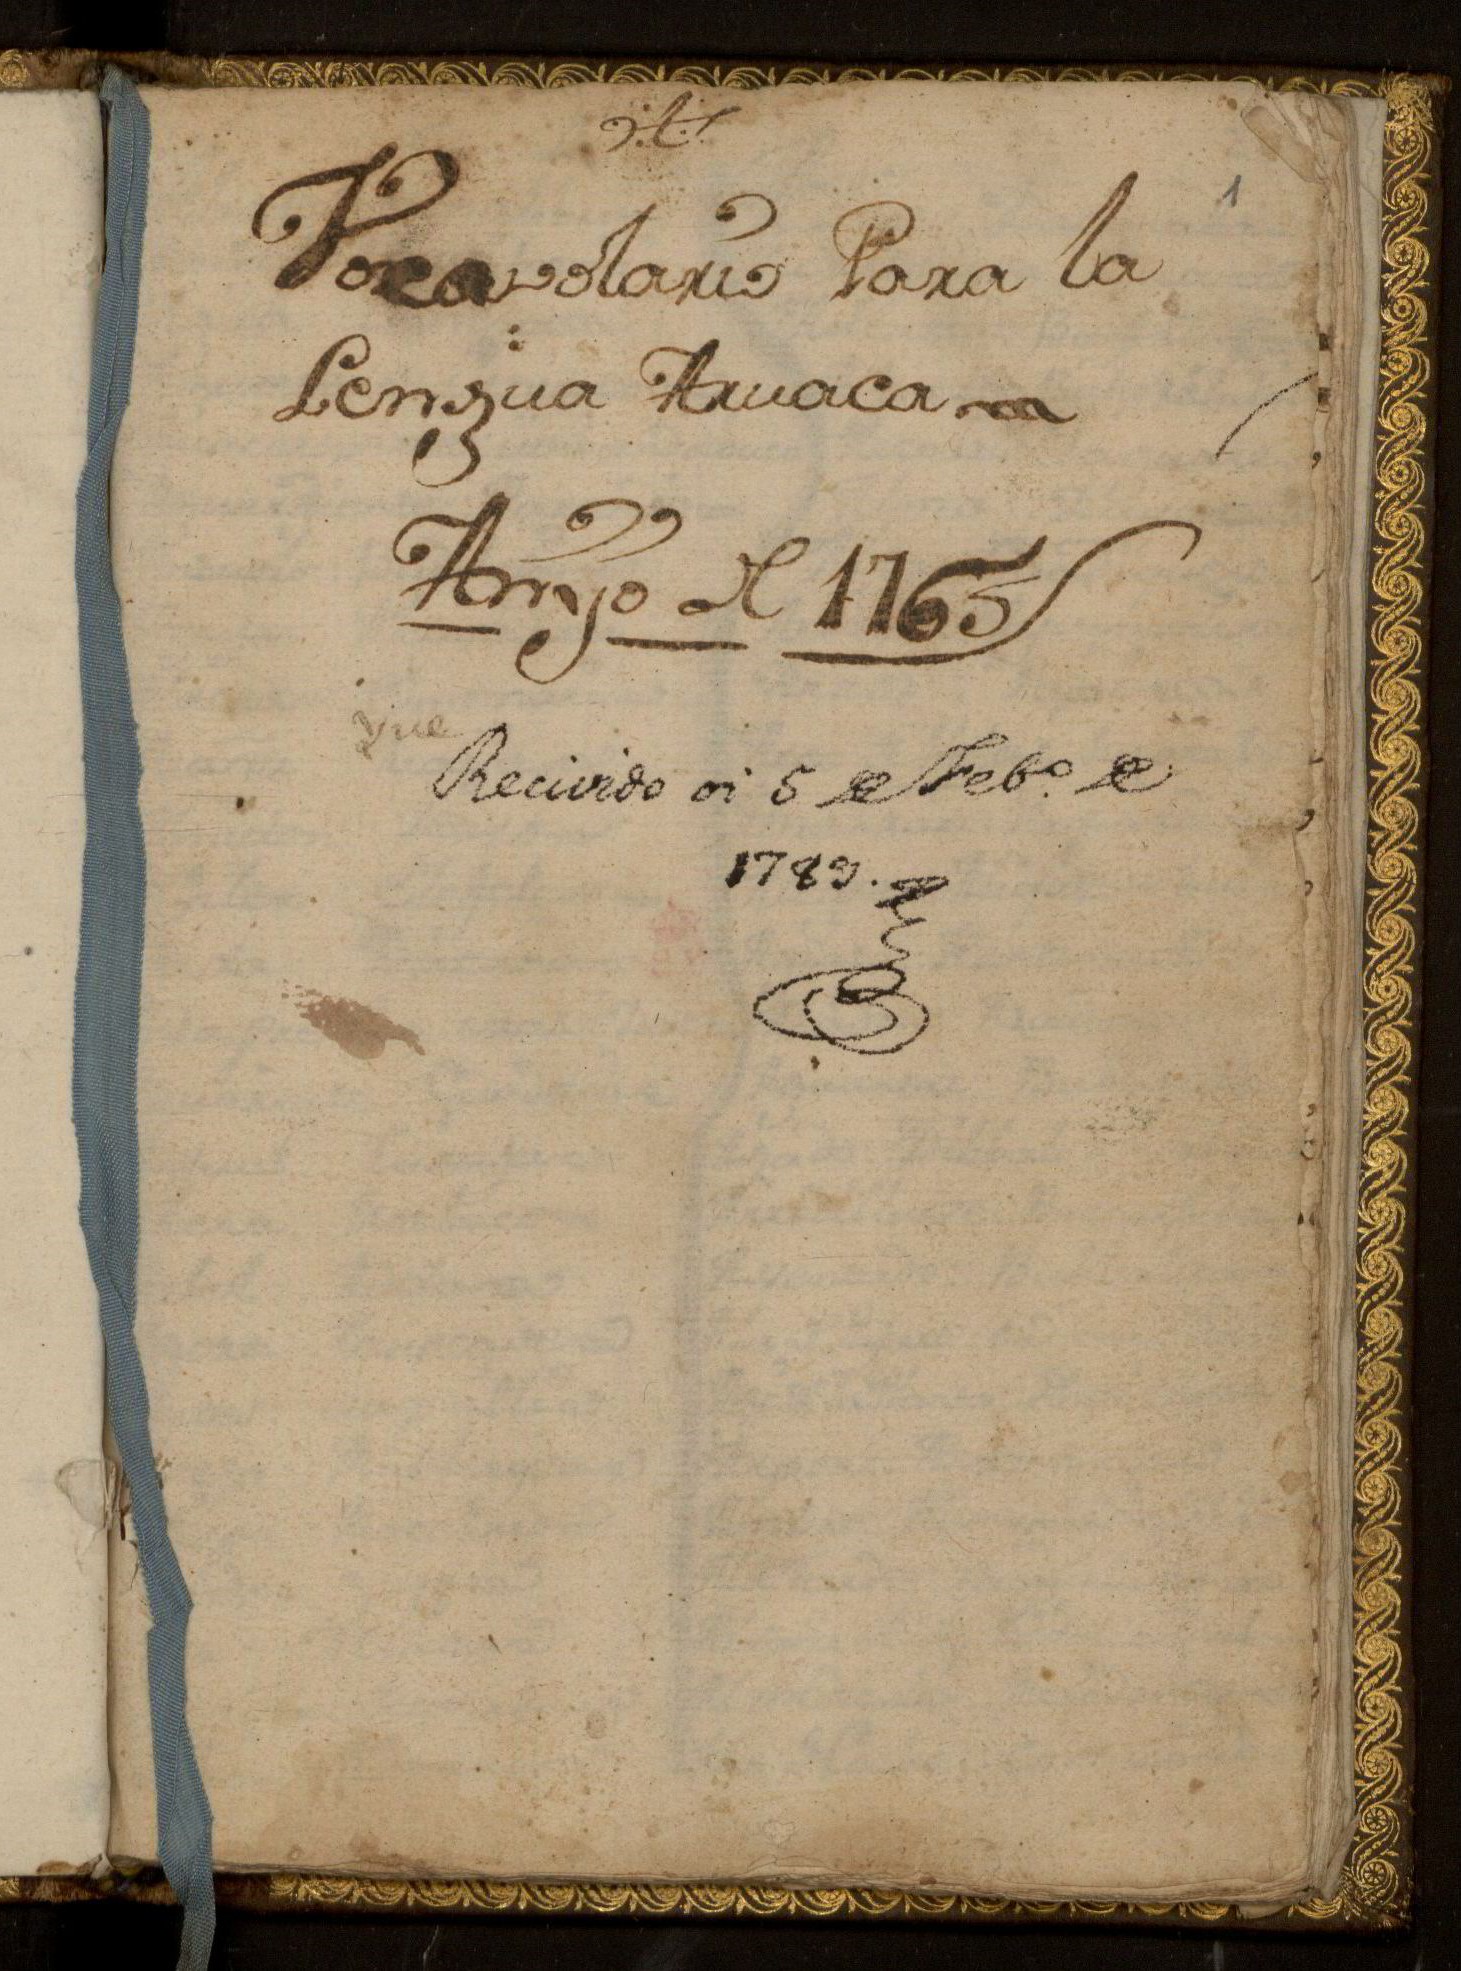 1
Vocavolario Para la
Lengua Aruaca
Annyo de 1765
que
Recivido oi 5 de Feb.o de
1789.